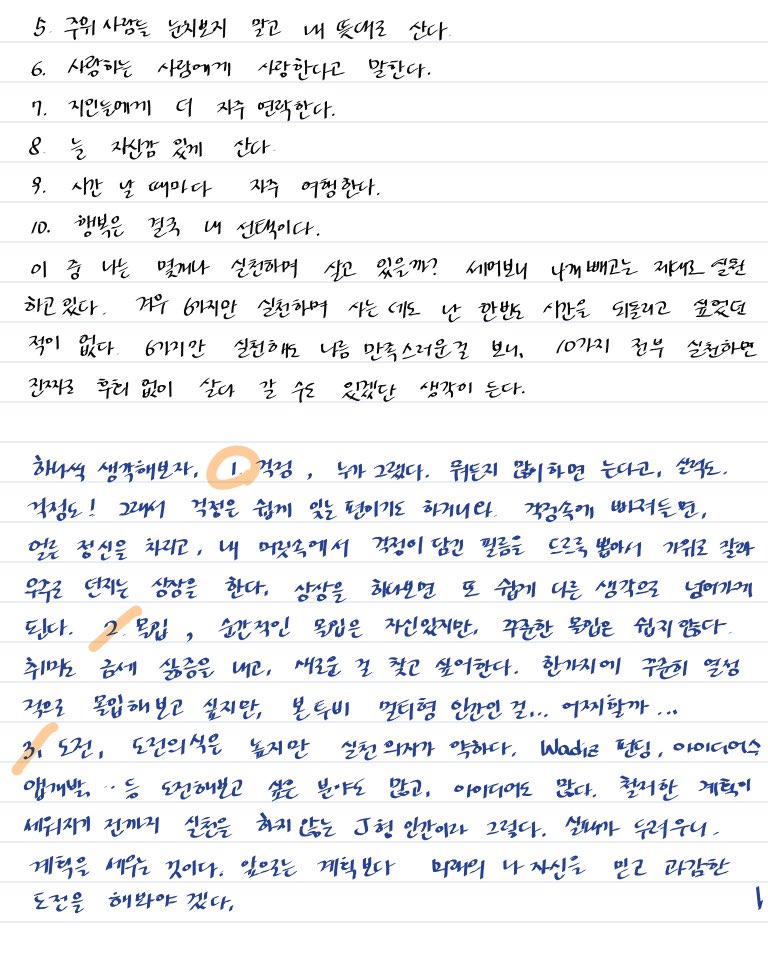 5. 주위 사람들 눈치보지 말고 내 뜻대로 산다.
6. 사랑하는 사람에게 사랑한다고 말한다.
7. 지인들에게 더 자주 연락한다.
8. 늘 자신감 있게 산다.
9. 시간 날 때마다 자주 여행한다.
10. 행복은 결국 내 선택이다.
이 중 나는 몇개나 실천하며 살고 있을까? 세어보니 4개 빼고는 제대로 실천
하고 있다. 겨우 6가지만 실천하며 사는 데도 난 한번도 시간을 되돌리고 싶었던
적이 없다. 6가지만 실천해도 나름 만족스러운걸 보니, 10가지 전부 실천하면
진짜로 후회 없이 살다 갈 수도 있겠단 생각이 든다.
하나씩 생각해보자. 1. 걱정, 누가 그랬다. 뭐든지 많이 하면 는다고, 실력도.
걱정도! 그래서 걱정은 쉽게 잊는 편이기도 하거니와 걱정속에 빠져들면,
얼른 정신을 차리고, 내 머릿속에서 걱정이 담긴 필름을 드르륵 뽑아서 가위로 잘라
우주로 던지는 상상을 한다. 상상을 하다보면 또 쉽게 다른 생각으로 넘어가게
된다. 2. 몰입, 순간적인 몰입은 자신있지만, 꾸준한 몰입은 쉽지 않다.
취미도 금세 싫증을 내고, 새로운 걸 찾고 싶어한다. 한가지에 꾸준히 열정
적으로 몰입해 보고 싶지만, 본 투비 멀티형 인간인 걸... 어찌할까...
3. 도전, 도전의식은 높지만 실천 의지가 약하다. Wadiz 펀딩, 아이디어스
앱개발, .. 등 도전해보고 싶은 분야도 많고, 아이디어도 많다. 철저한 계획이
세워지기 전까지 실천을 하지 않는 J형 인간이라 그렇다. 실패가 두려우니.
계획을 세우는 것이다. 앞으로는 계획보다 미래의 나 자신을 믿고 과감한
도전을 해봐야 겠다.